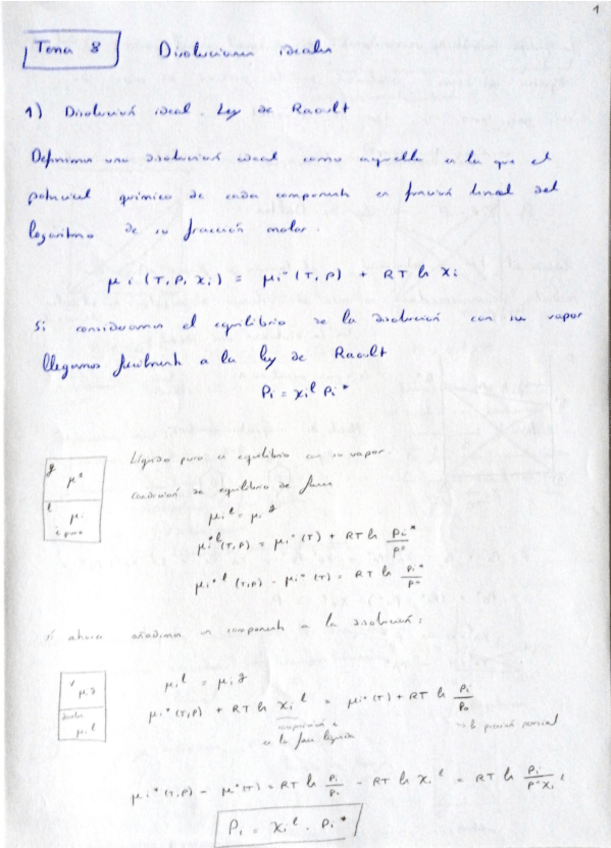 1
Tema 8 Disoluciones ideales
1) Disolución ideal. Ley de Raoult
Definimos una disolución ideal como aquella en la que el
potencial químico de cada componente es función lineal del
logaritmo de su fracción molar.
μi (T, P, xi) = μi* (T, P) + RT ln xi
Si consideramos el equilibrio de la disolución con su vapor
llegamos fácilmente a la ley de Raoult
Pi = xi^l Pi*
Líquido puro en equilibrio con su vapor.
Condición de equilibrio de fases
g μ*
l μi
i puro
μi^l = μi^g
μi*^l (T,P) = μi° (T) + RT ln Pi*/P°
μi*^l (T,P) - μi° (T) = RT ln Pi*/P°
Si ahora añadimos un componente a la disolución:
μi^g
μi^l
μi^l = μi^g
μi* (T,P) + RT ln xi^l = μi° (T) + RT ln Pi/P0
composición i
en la fase líquida
→ la presión parcial
μi* (T,P) - μ° (T) = RT ln Pi/P° - RT ln xi^l = RT ln Pi/P° xi^l
Pi = xi^l · Pi*